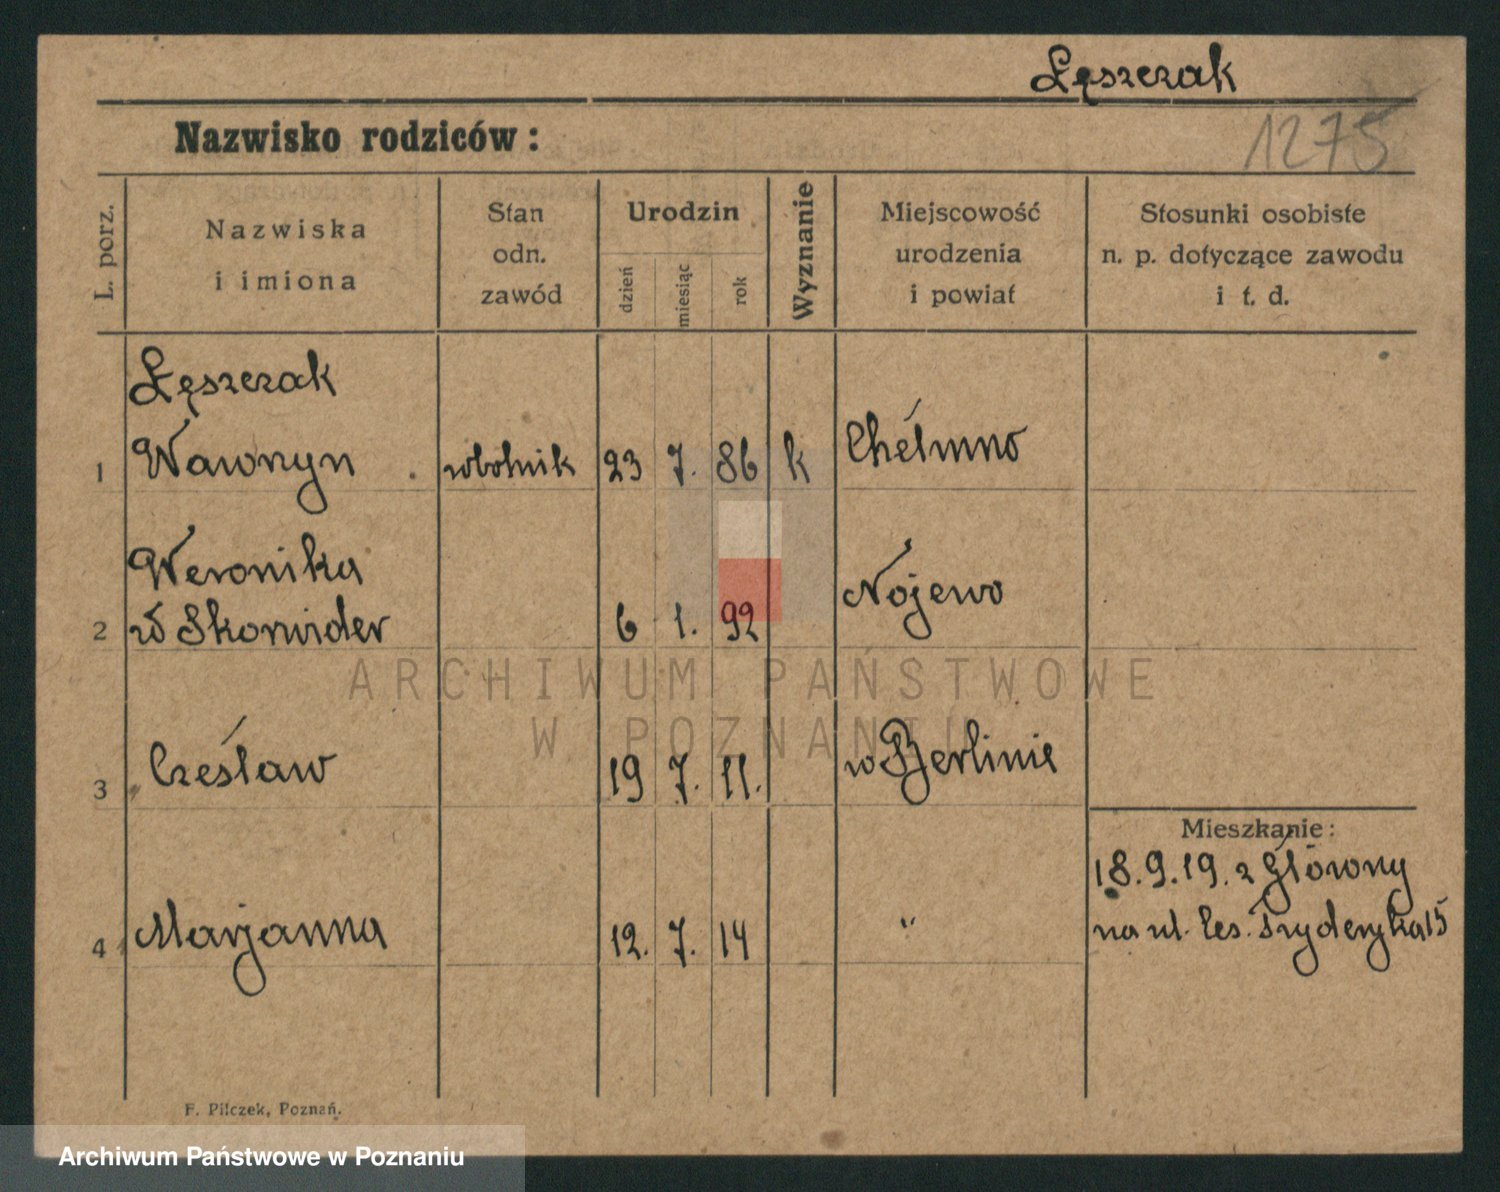 Łęszczak
Nazwisko rodziców:
1275
L. porz.
Nazwiska
i imiona
Stan
odn.
zawód
Urodzin
dzień
miesiąc
rok
Wyznanie
Miejscowość
urodzenia
i powiat
Stosunki osobiste
n. p. dotyczące zawodu
i t. d.
Łęszczak
1 Wawrzyn robotnik 23 7. 86 k Chełmno
Weronika
2 z Skowider 6 1. 92 Nojewo
3 Czesław 19 7. 11. w Berlinie
4 Marjanna 12. 7. 14 "
Mieszkanie:
18.9.19. z Główny
na ul. Ces. Fryderyka 15
F. Pilczek, Poznań.
ARCHIWUM PAŃSTWOWE
W POZNANIU
Archiwum Państwowe w Poznaniu